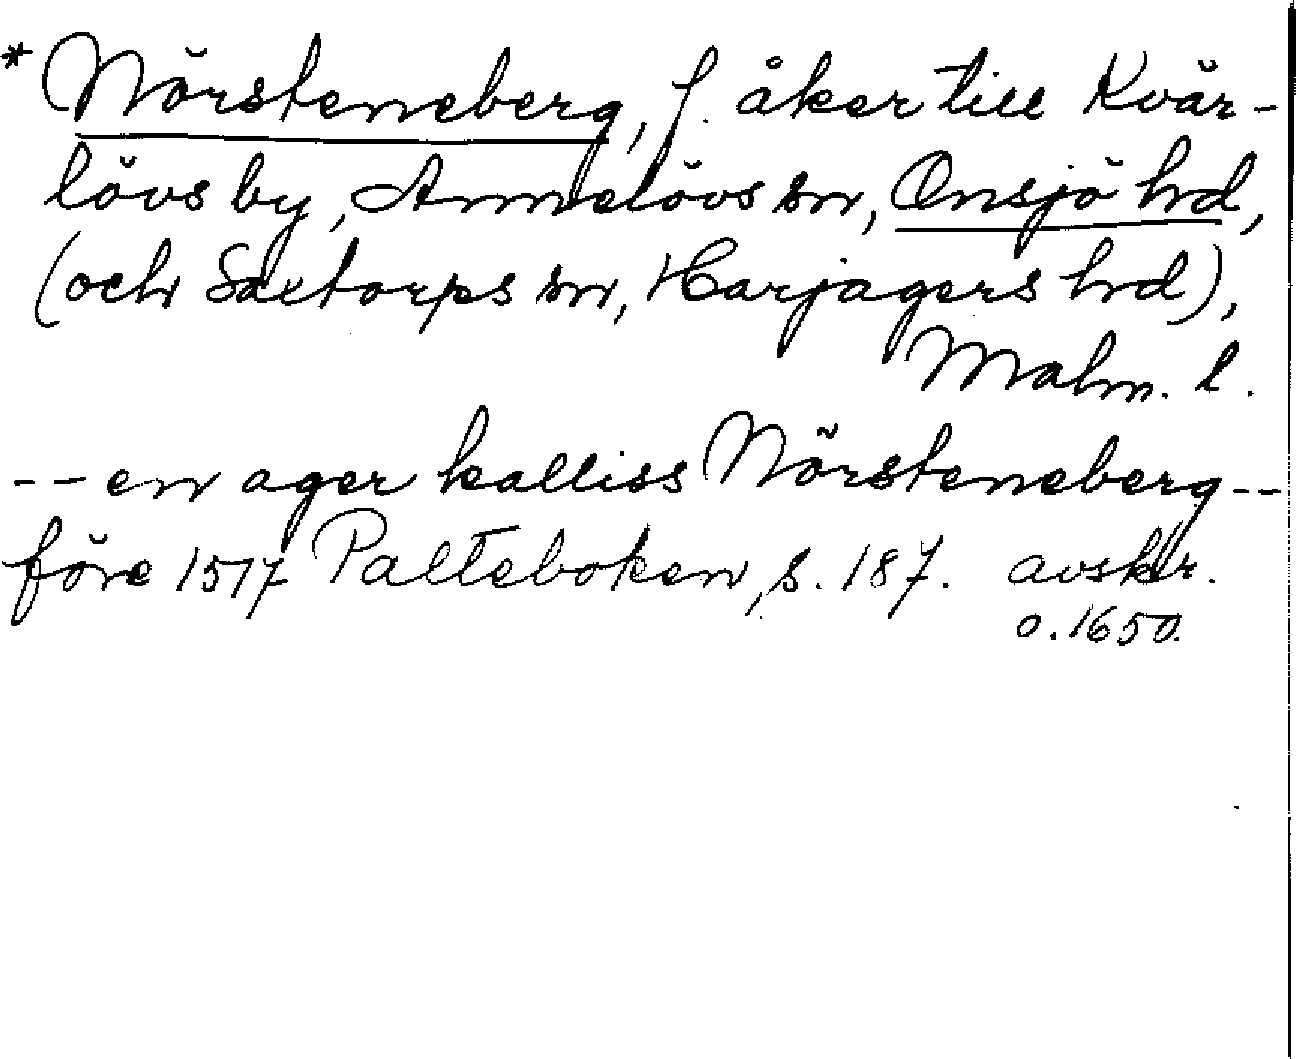 * Nörsteneberg, f. åker till Kvär-
lövs by, Annelövs sn, Onsjö hrd,
(och Saxtorps sn, Harjagers hrd),
Malm. l.
-- en ager kalliss Nörsteneberg --
före 1517 Palteboken, s. 187. avskr.
o. 1650.